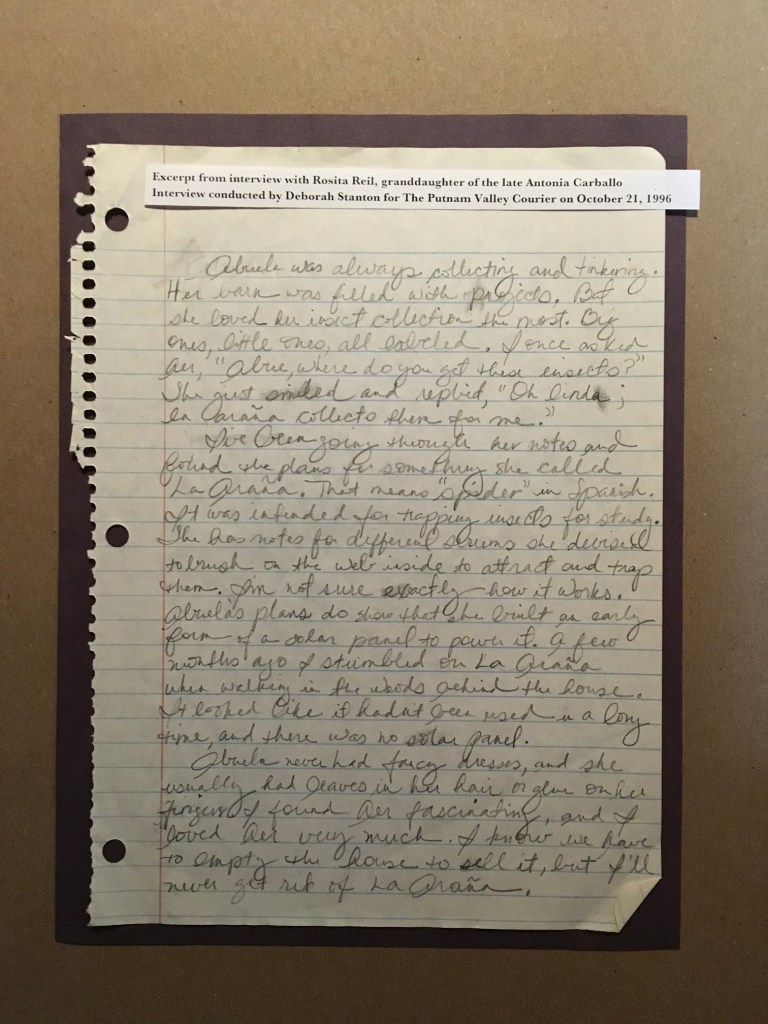 Excerpt from interview with Rosita Reil, granddaughter of the late Antonia Carballo
Interview conducted by Deborah Stanton for The Putnam Valley Courier on October 21, 1996
Abuela was always collecting and tinkering.
Her barn was filled with projects. But
she loved her insect collection the most. Big
ones, little ones, all labeled. I once asked
her, "Abue, where do you get these insects?"
She just smiled and replied, "Oh linda;
la araña collects them for me."
I've been going through her notes and
found the plans for something she called
La Araña. That means "spider" in Spanish.
It was intended for trapping insects for study.
She has notes for different serums she devised
to brush on the web inside to attract and trap
them. I'm not sure exactly how it works.
Abuela's plans do show that she built an early
form of a solar panel to power it. A few
months ago I stumbled on La Araña
when walking in the woods behind the house.
It looked like it hadn't been used in a long
time, and there was no solar panel.
Abuela never had fancy dresses, and she
usually had leaves in her hair or glue on her
fingers. I found her fascinating, and I
loved her very much. I know we have
to empty the house to sell it, but I'll
never get rid of La Araña.